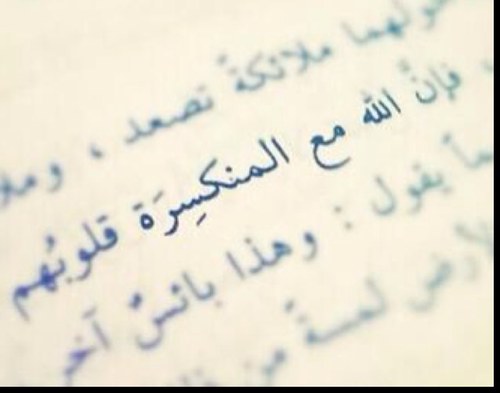 حولهما ملائكةٌ تصعد ، وملا
فإنَّ الله مع المنكسِرَة قلوبُهم
يقول : وهذا بائسٌ آخر
الأرض لمسةً من